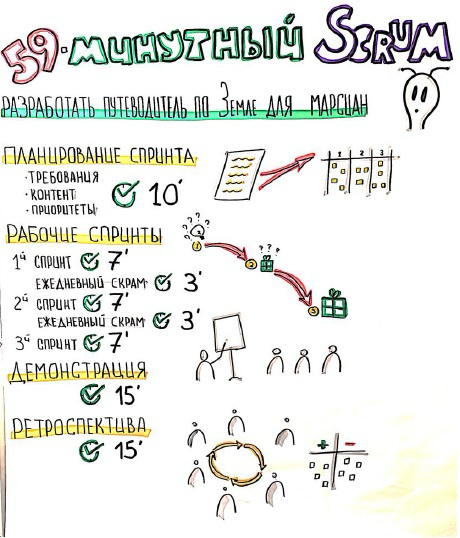 59-минутный SCRUM
РАЗРАБОТАТЬ ПУТЕВОДИТЕЛЬ ПО ЗЕМЛЕ ДЛЯ МАРСИАН
ПЛАНИРОВАНИЕ СПРИНТА
· ТРЕБОВАНИЯ
· КОНТЕНТ
· ПРИОРИТЕТЫ
10'
1 2 3
РАБОЧИЕ СПРИНТЫ
1й СПРИНТ 7'
ЕЖЕДНЕВНЫЙ СКРАМ 3'
2й СПРИНТ 7'
ЕЖЕДНЕВНЫЙ СКРАМ 3'
3й СПРИНТ 7'
? ? ? ?
1
2
? ? ?
3
ДЕМОНСТРАЦИЯ
15'
РЕТРОСПЕКТИВА
15'
+ -